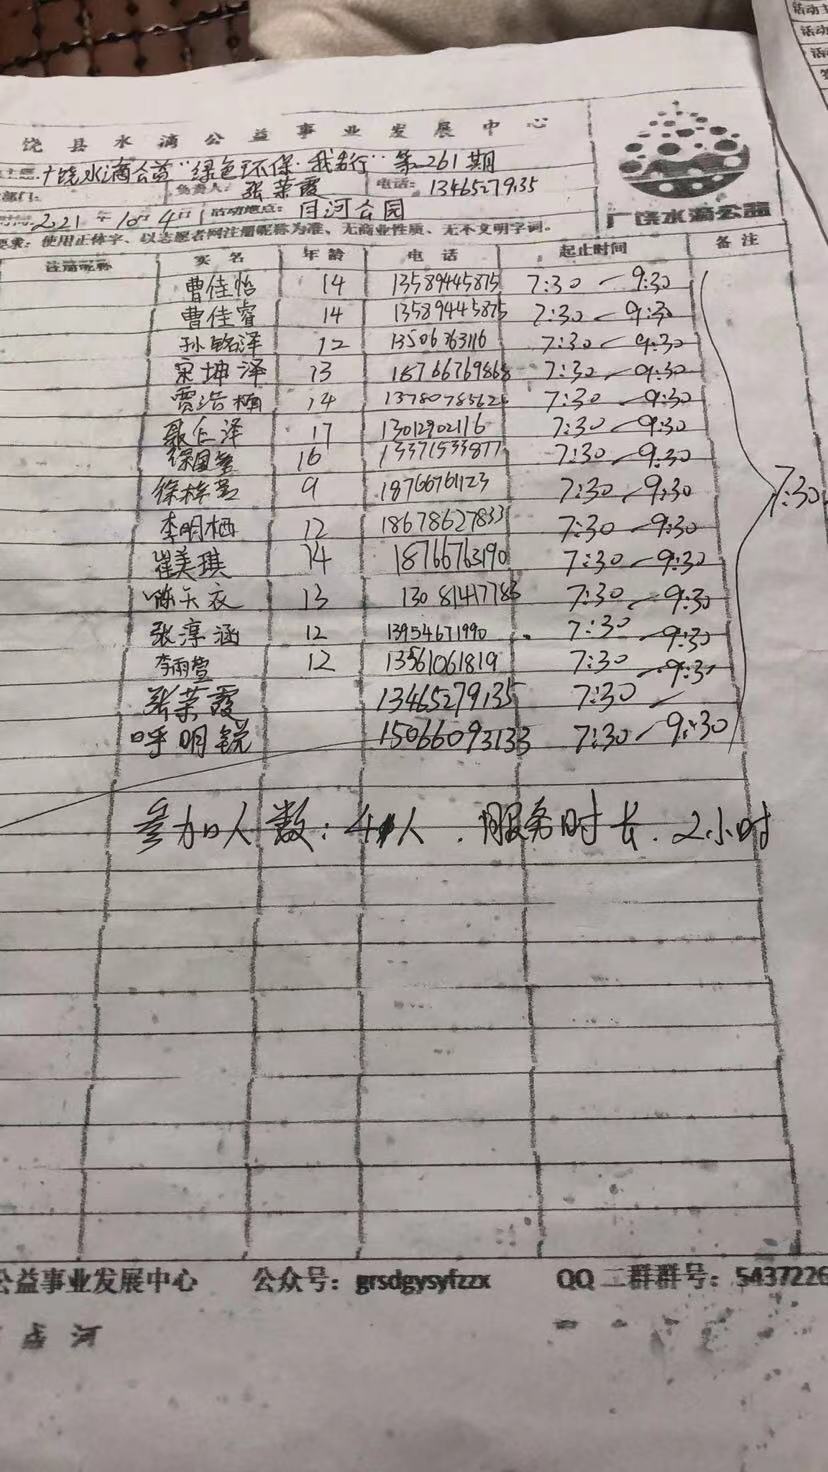 饶县水滴公益事业发展中心
广饶水滴公益"绿色环保·我先行"第261期
部门: 负责人: 张荣霞 电话: 13465279135
时间 2021年10月4日 活动地点: 月河公园
要求: 使用正体字、以志愿者网注册昵称为准、无商业性质、无不文明字词。
广饶水滴公益
注册昵称 实名 年龄 电话 起止时间 备注
曹佳怡 14 13589445875 7:30-9:30
曹佳睿 14 13589445875 7:30-9:30
孙铭泽 12 13506763116 7:30-9:30
宋坤泽 13 18766769868 7:30-9:30
贾浩楠 14 7:30-9:30
聂仁泽 17 13012902116 7:30-9:30
16 13371533877 7:30-9:30
徐梓 9 18766761123 7:30-9:30
7:30
李明栖 12 18678627833 7:30-9:30
崔美琪 14 18766763190 7:30-9:30
陈乐衣 13 13081417783 7:30-9:30
张淳涵 12 13954671990 7:30-9:30
李雨萱 12 13561061819 7:30-9:3
张荣霞 13465279135 7:30-
呼明锐 15066093133 7:30-9:30
参加人数: 人. 服务时长. 2小时
公益事业发展中心 公众号: grsdgysyfzzx QQ二群群号: 5437226
河